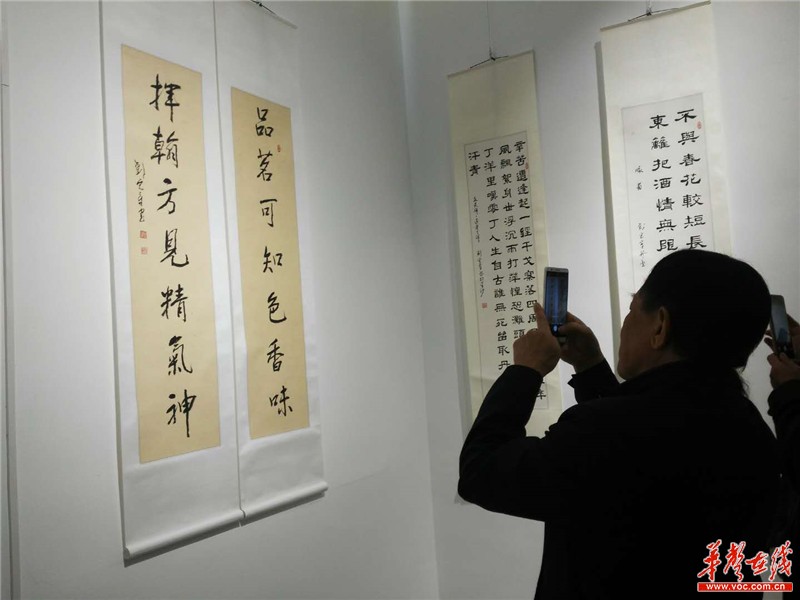 品茗可知色香味
揮翰方見精氣神
辛苦遭逢起一經干戈寥落四周
風飄絮身世浮沉雨打萍惶恐灘頭
丁洋里嘆零丁人生自古誰無死留取丹
汗青
不與春花較短長
東籬把酒情無限
华声在线
www.voc.com.cn